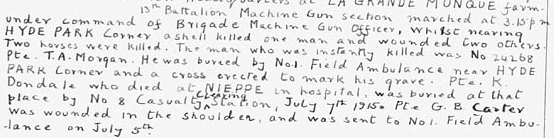 quarters at LA GRANDE MUNQUE farm.
13th Battalion Machine Gun section marched at 3.15 pm
under command of Brigade Machine Gun Officer, whilst nearing
HYDE PARK Corner a shell killed one man and wounded two others.
Two horses were killed. The man who was instantly killed was No 24268
Pte. T.A. Morgan. He was buried by No.1. Field Ambulance near HYDE
PARK Corner and a cross erected to mark his grave. Pte. K.
Dondale who died at NIEPPE in hospital, was buried at that
place by No 8 Casualty Clearing Station, July 7th 1915. Pte G. B. Carter
was wounded in the shoulder, and was sent to No1. Field Ambu-
-lance on July 5th